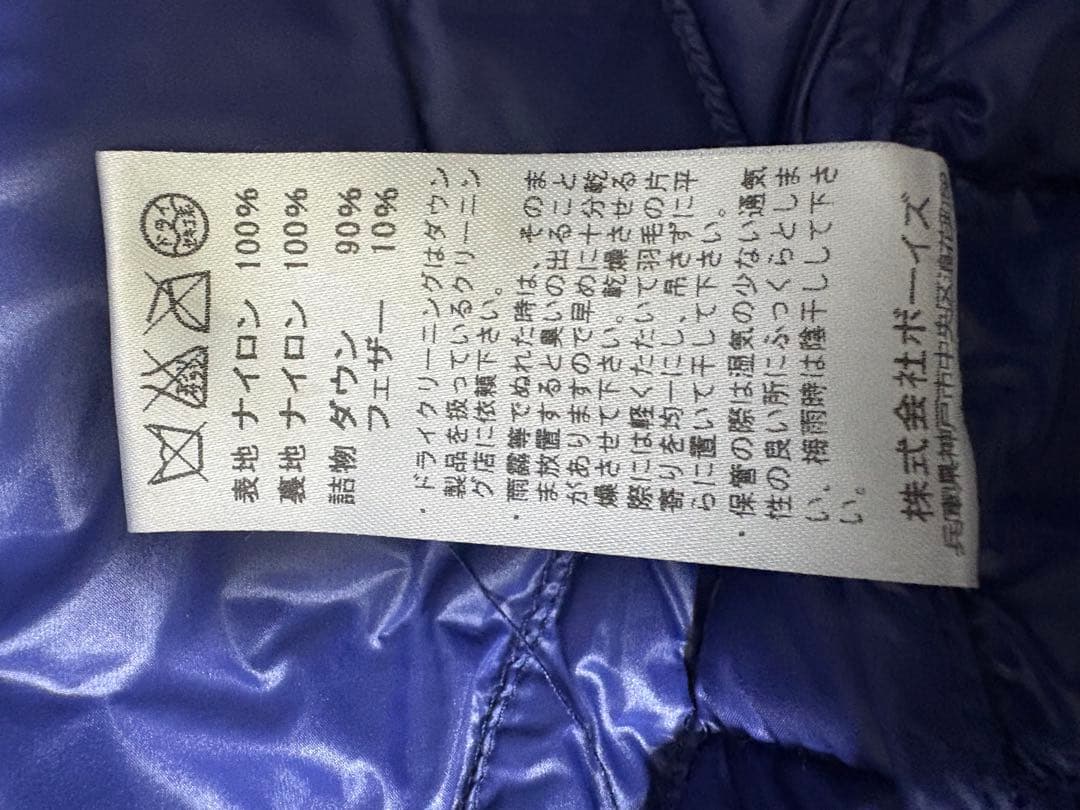 ドライ
表地 ナイロン 100%
裏地 ナイロン 100%
詰物 ダウン 90%
フェザー 10%
・ドライクリーニングはダウン
製品を扱っているクリーニン
グ店に依頼下さい。
・雨露等でぬれた時は、そのま
ま放置すると臭いの出ること
がありますので早めに十分乾
燥させて下さい。乾燥させる
際には軽くたたいて羽毛の片
寄りを均一にし、吊さずに平
らに置いて干して下さい。
・保管の際は湿気の少ない通気
性の良い所にふっくらとしま
い、梅雨時は陰干しして下さ
い。
株式会社ボーイズ
兵庫県神戸市中央区港